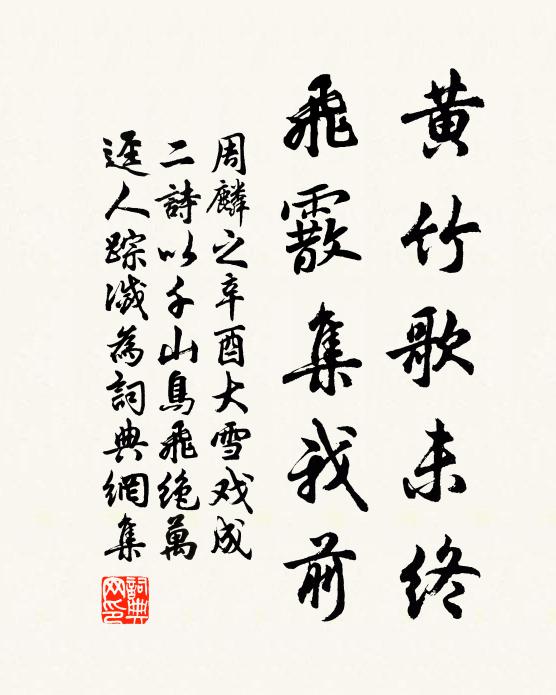 黄竹歌未终
飛霰集我前
周麟之辛酉大雪戏成
二詩以千山鳥飛绝萬
逕人踪滅為詞典網集
詞典网印